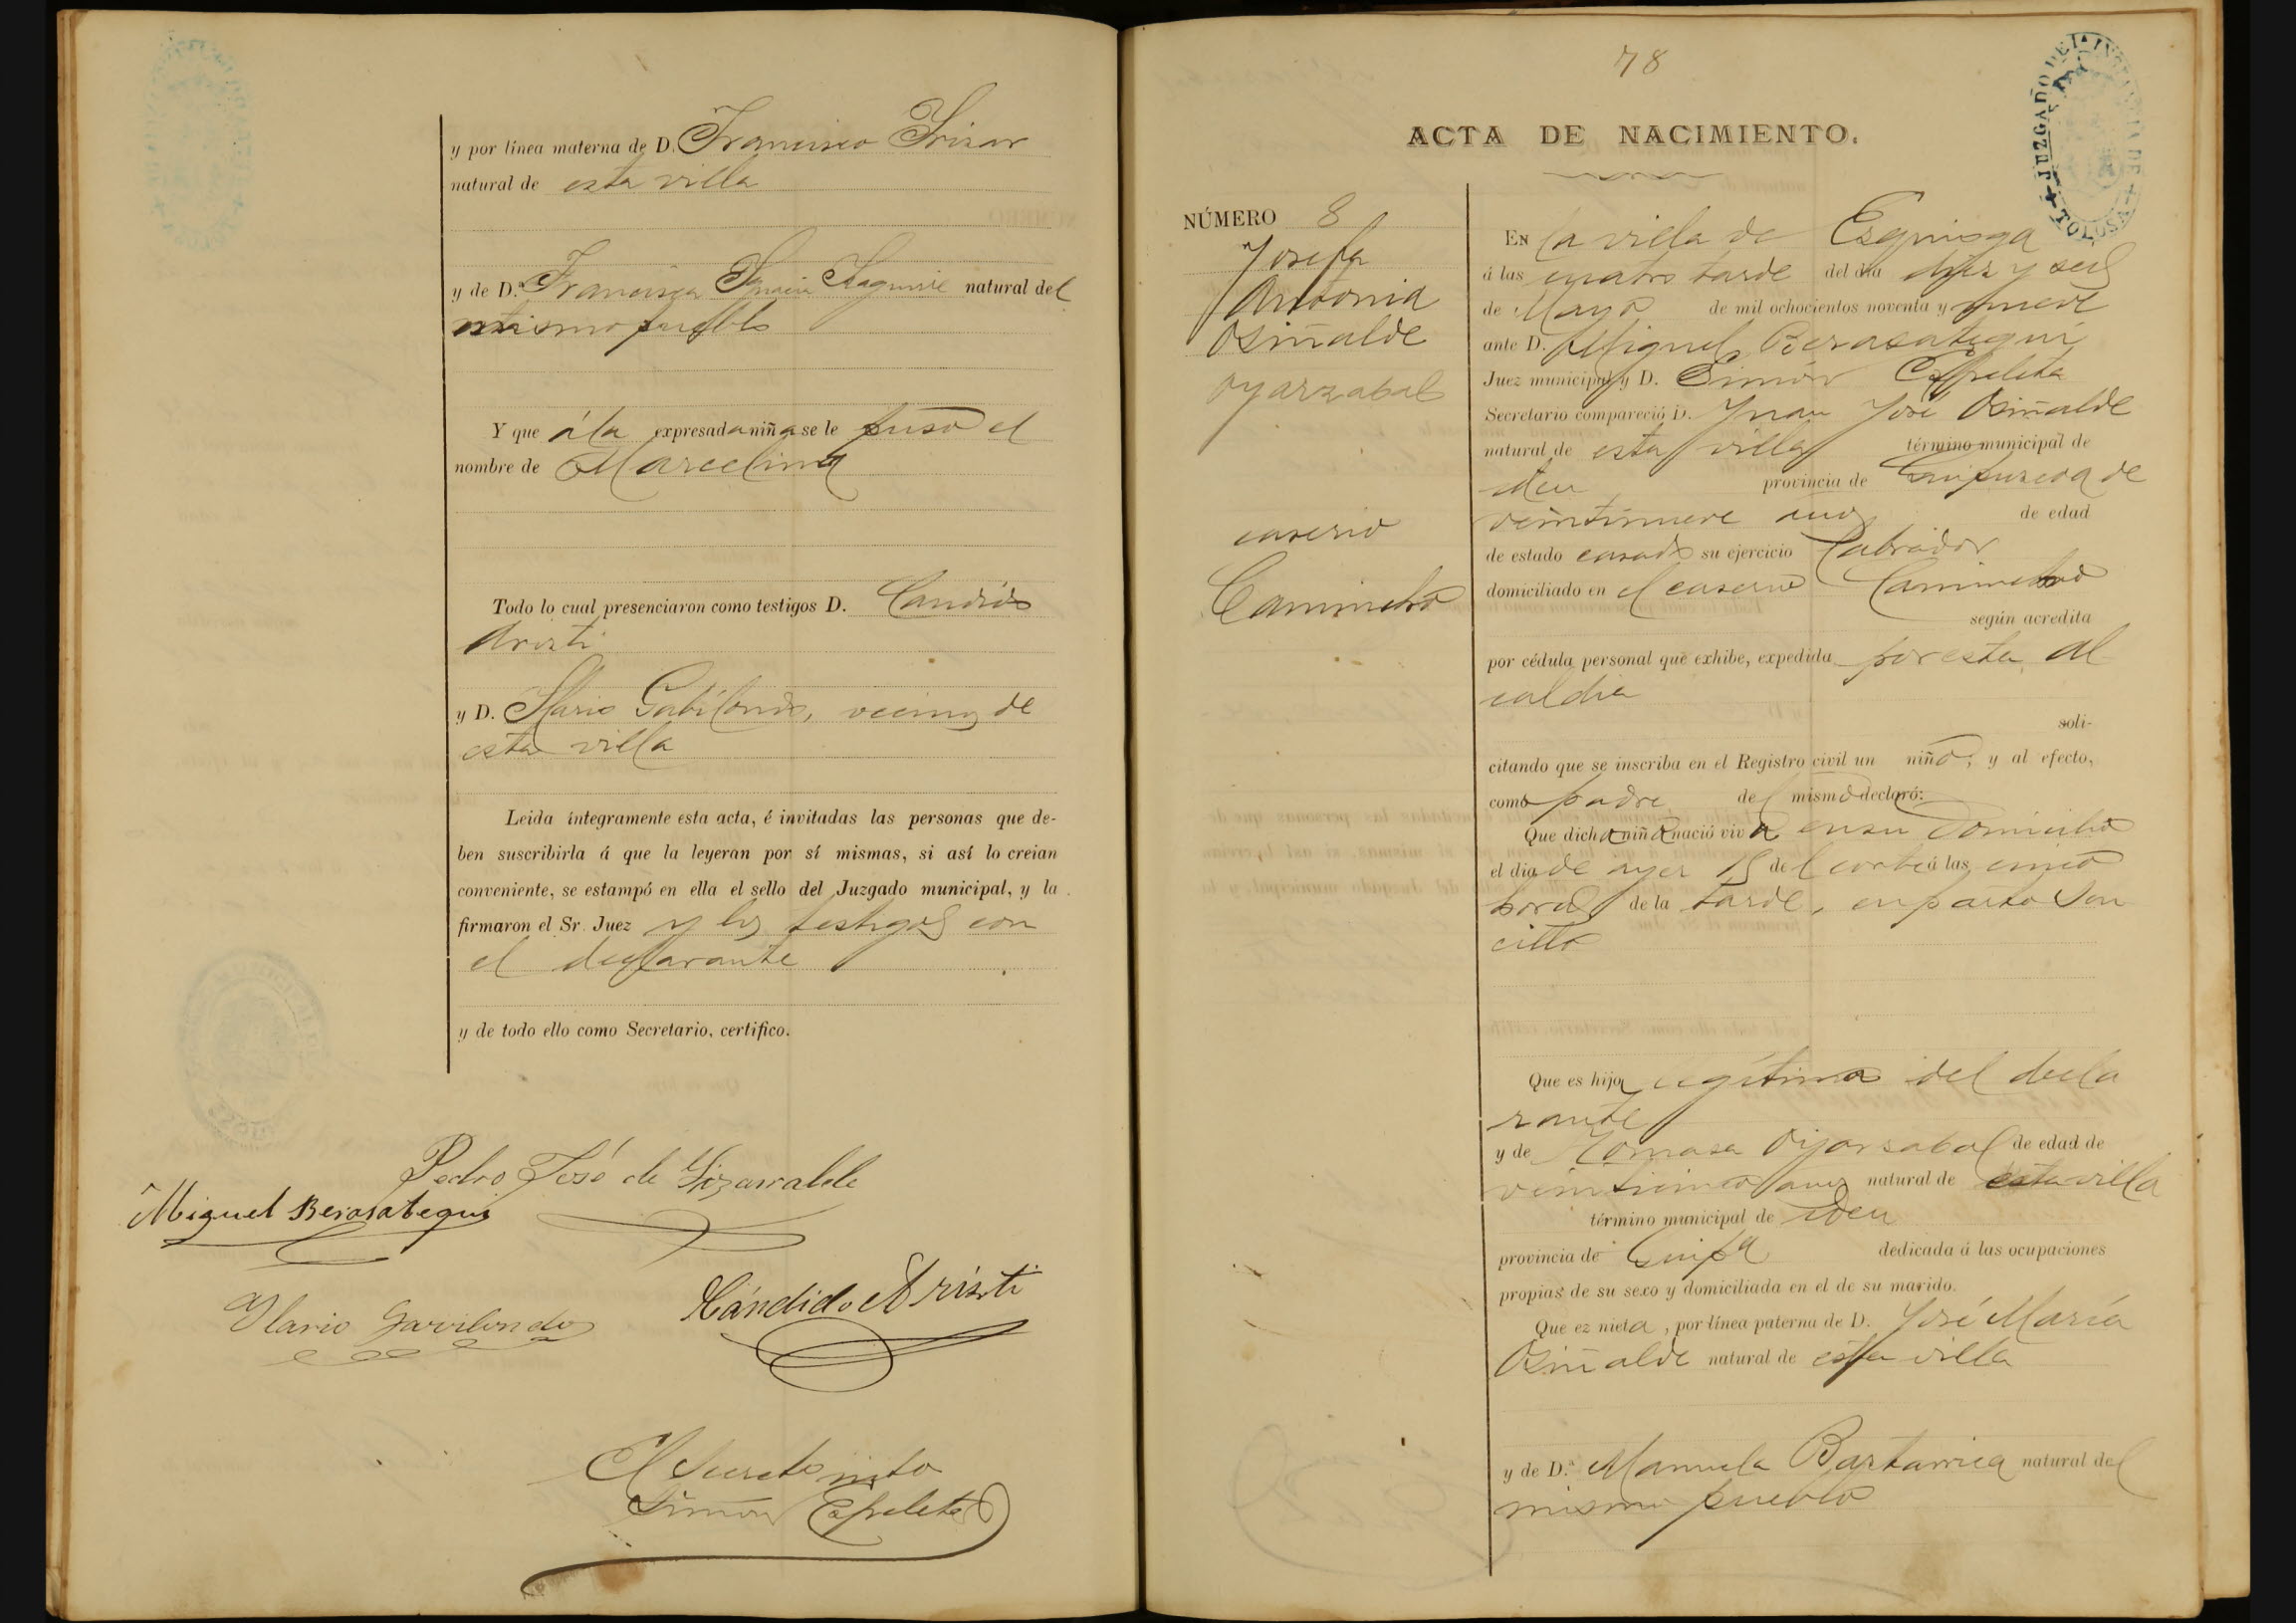 y por línea materna de D. Francisco Irizar
natural de esta villa
y de D.ª Francisca Ignacia Izaguirre natural del
mismo pueblo
Y que á la expresada niña se le puso el
nombre de Marcelina
Todo lo cual presenciaron como testigos D. Candido
Aristi
y D. Ylario Gabilondo, vecinos de
esta villa
Leida íntegramente esta acta, é invitadas las personas que de-
ben suscribirla á que la leyeran por sí mismas, si así lo creian
conveniente, se estampó en ella el sello del Juzgado municipal, y la
firmaron el Sr. Juez y los testigos con
el declarante
y de todo ello como Secretario, certifico.
Pedro José de Lizarralde
Miguel Berasategui
Ylario Gavilondo
Cándido Aristi
El Secreto
Simon Ezpeleta
78
JUZGADO DE 1ª INSTANCIA DE TOLOSA
ACTA DE NACIMIENTO.
NÚMERO 8
Josefa
Antonia
Osiñalde
Oyarzabal
caserio
En la villa de Ezquioga
á las cuatro tarde del dia diez y seis
de Mayo de mil ochocientos noventa y nueve
ante D. Miguel Berasategui
Juez municipal y D. Simón Ezpeleta
Secretario compareció D. Juan José Osiñalde
natural de esta villa término municipal de
idem provincia de Guipuzcoa de
veintinueve años de edad
de estado casado su ejercicio Labrador
domiciliado en el caserio
según acredita
por cédula personal que exhibe, expedida por esta Al
caldia
soli-
citando que se inscriba en el Registro civil un niño, y al efecto,
como padre del mismo declaró:
Que dicha niña nació viva en su domicilio
el dia de ayer 15 del corte á las cinco
horas de la tarde, en parto sen
cillo
Que es hija legítima del decla
rante
y de Tomasa Oyarzabal de edad de
veinticinco años natural de esta villa
término municipal de idem
provincia de Guipª dedicada á las ocupaciones
propias de su sexo y domiciliada en el de su marido.
Que ez nieta, por línea paterna de D. José María
Osiñalde natural de esta villa
y de D.ª Manuela Bastarrica natural del
mismo pueblo